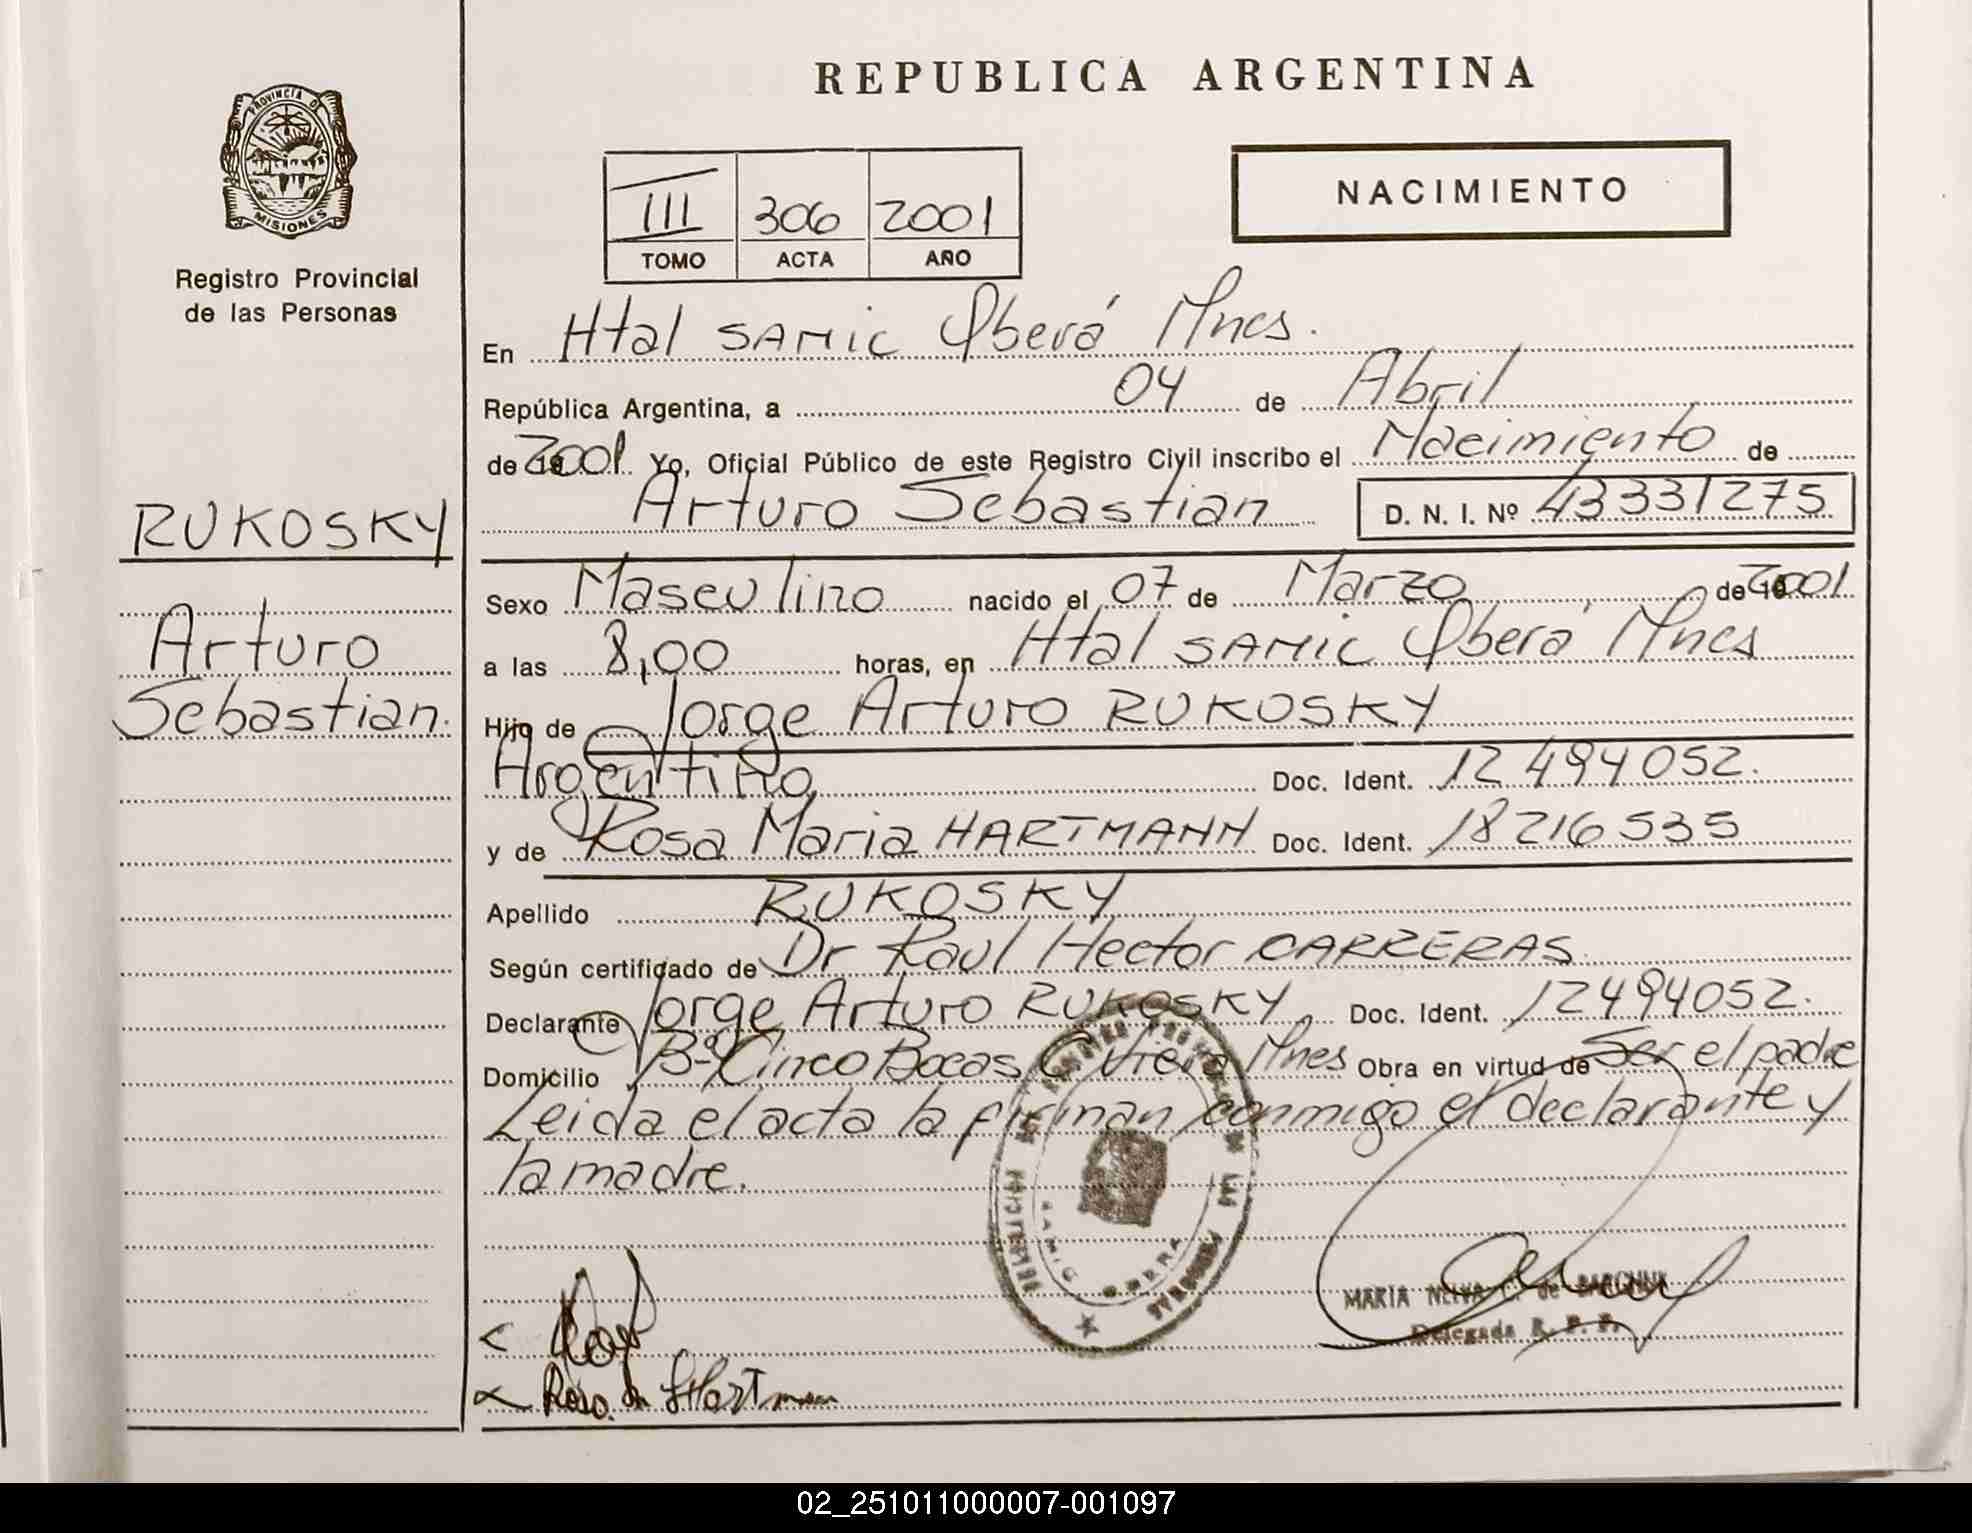 REPUBLICA ARGENTINA
PROVINCIA DE
MISIONES
Registro Provincial
de las Personas
III 306 2001
TOMO ACTA AÑO
NACIMIENTO
En Htal SAMIC Oberá Mnes.
República Argentina, a 04 de Abril
de 2001 Yo, Oficial Público de este Registro Civil inscribo el Nacimiento de
Arturo Sebastian D. N. I. Nº 43331275
RUKOSKY
Arturo
Sebastian.
Sexo Masculino nacido el 07 de Marzo de 2001
a las 8,00 horas, en Htal SAMIC Oberá Mnes
Hijo de Jorge Arturo RUKOSKY
Argentino Doc. Ident. 12494052.
y de Rosa Maria HARTMANN Doc. Ident. 18216535
Apellido RUKOSKY
Según certificado de Dr Raul Hector CARRERAS
Declarante Jorge Arturo RUKOSKY Doc. Ident. 12494052.
Domicilio Bº Cinco Bocas Mnes Obra en virtud de Ser el padre
Leida el acta la firman conmigo el declarante y
la madre.
SAMIC OBERA
MARIA de
Delegada R. P. P.
02_251011000007-001097